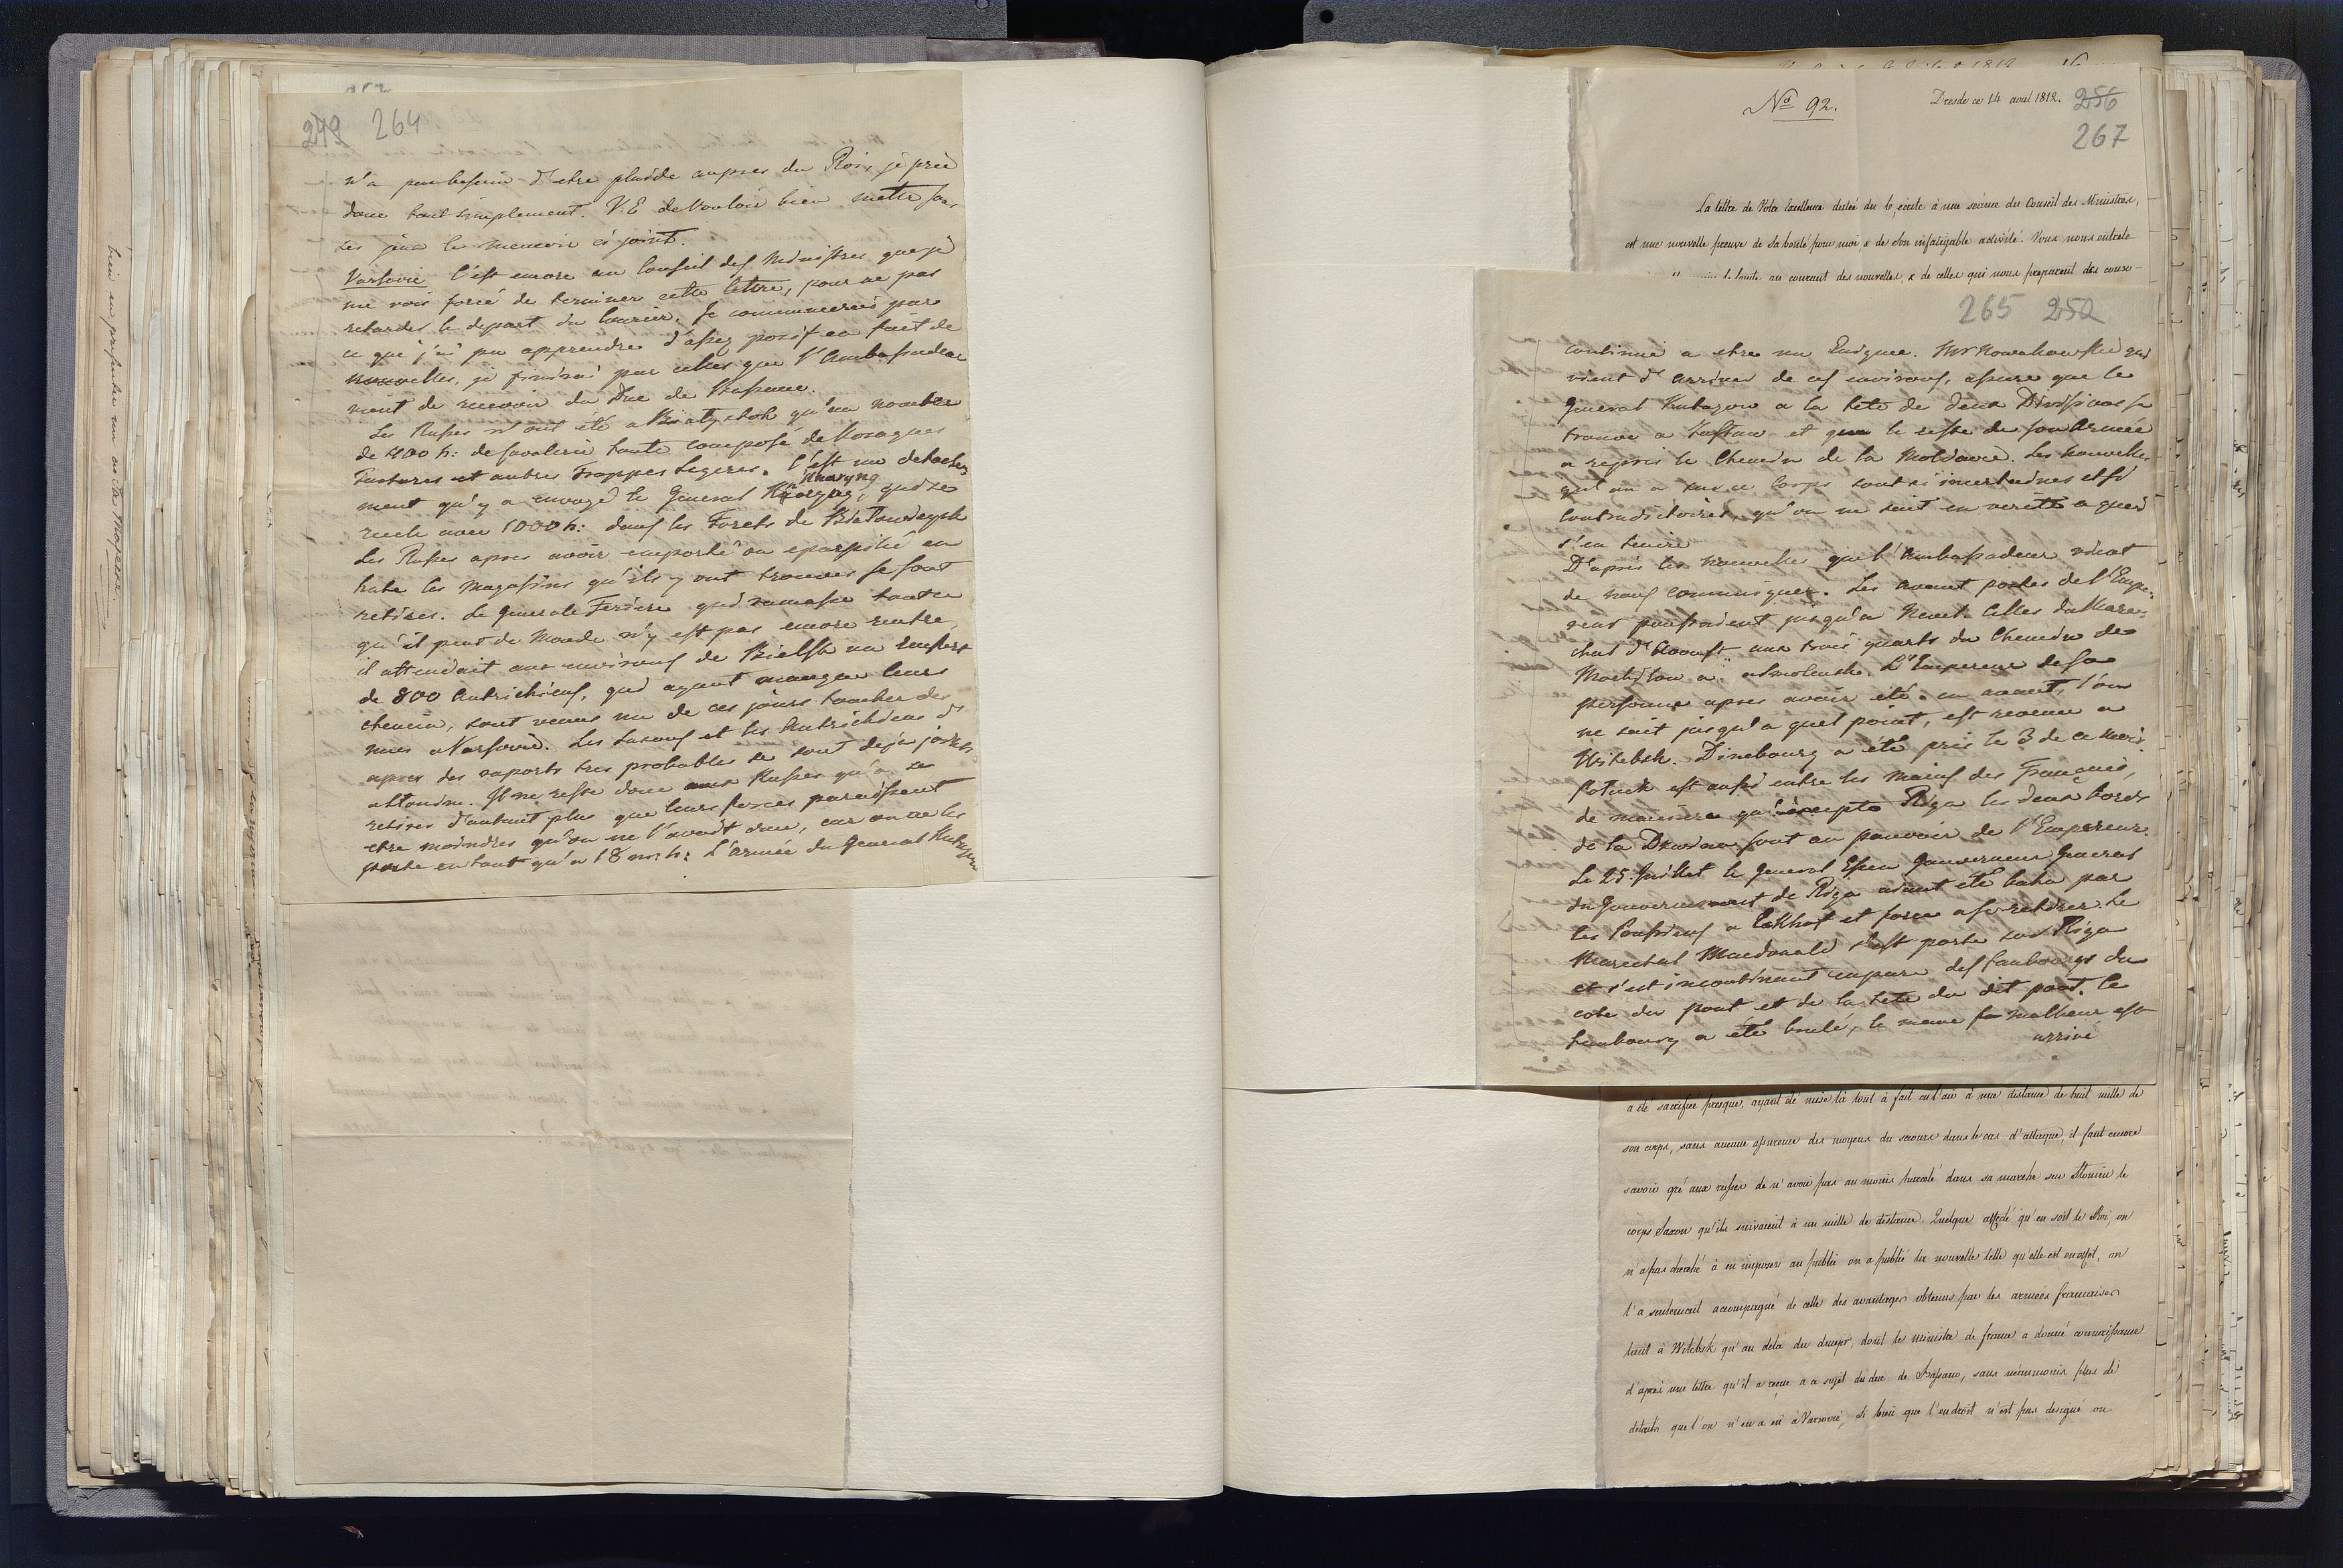 249 264
n'a pas besoin d'etre plaidée aupres du Roi, je prie
donc tout simplement. V.E de vouloir bien mettre sous
ses yeux le memoire ci joint.
Varsovie C'est encore au Conseil des Ministres que je
me vois forcé de terminer cette lettre, pour ne pas
retarder le depart du Courier. Je commencerai par
ce que j'ai pu apprendre d'assez positif en fait de
nouvelles, je finirai par celles que l'Ambassadeur
vient de recevoir du Duc de Bassano.
Les Russes n'ont été a Biatystok qu'au nombre
de 400 h: de Cavalerie toute composé de Kosaques
Tartares et autres Trouppes Legeres. C'est un detache
ment qu'y a envoyé le General qui se
tient avec 1000 h: dans les Forets de
Les Russes apres avoir emporté ou eparpillé en
hate les magasins qu'ils y ont trouvés se sont
retirés. Le General Feriere qui ramasse tout ce
qu'il peut de Monde n'y est pas encore rentré,
il attendait aux environs de Bielsk un renfort
de 800 Autrichiens, qui ayant manqué leurs
chemin, sont venus un de ces jours tomber des
nues a Varsovie. Les Saxons et les Autrichiens d'
apres des raports tres probables se sont deja joints
attendu. Il ne reste donc aux Russes qu'a se
retirer d'autant plus que leurs forces paroissent
etre moindres qu'on ne l'avoit crue, car on ne les
porte en tout qu'a 18 m: h: L'armée du General
bien en presenter un au Sa Majesté.
Nº 92.
Dresde ce 14 aout 1812.
256
267
La lettre de Votre Excellence datée du 6, écrite à une séance du Conseil des Ministres,
est une nouvelle preuve de Sa bonté pour moi & de Son infatigable activité. Vous nous entrete-
au courant des nouvelles, & de celles qui nous preparent des conso-
265 252
continue a etre un Enigme. Mr Nowakowski qui
vient d'arriver de ces environs, assure que le
General Kutuzow a la tete de deux Divisions se
trouve a et que le reste de son Armée
a repris le Chemin de la Moldavie. Les nouvelles
qu'on a sur ce Corps sont si incertaines et si
contradictoires, qu'on ne sait en verité a quoi
s'en tenir
D'apres les nouvelles que l'Ambassadeur vient
de nous communiquer. Les avant postes de l'Empe-
reur poussoient jusqu'a Newel. Celles du Mare-
chal d'Avoust aux trois quarts du Chemin de
Mochilow a Smolensk. L'Empereur de sa
personne apres avoir été en avant, l'on
ne sait jusqu'a quel point, est revenu a
Witebsk. Dinebourg a été pris le 3 de ce mois.
Potock est aussi entre les mains des Français,
de maniere qu'excepté Riga les deux bords
de la Dzwina sont au pouvoir de l'Empereur.
Le 25 Juillet le General Essen Gouverneur General
du Gouvernement de Riga aiant été batu par
les Prussiens a Eckhof et forcé a se retirer. Le
Marechal Macdonald s'est porté sur Riga
et s'est incontinent emparé des faubourgs du
coté du pont et de la tete du dit pont. Ce
faubourg a été brulé, le meme malheur est
arrivé
a été sacrifiée presque, ayant été mise là tout à fait en l'air à une distance de huit mille de
son corps, sans aucune assurance des moyens du secours dans le cas d'attaque, il faut encore
savoir gré aux russes de n'avoir pas au moins harcelé dans sa marche sur Slonim le
corps Saxon qu'ils suivaient à un mille de distance. Quelque affecté qu'en soit le Roi, on
n'a pas cherché à en imposer au public on a publié la nouvelle telle qu'elle est en effet, on
l'a seulement accompagné de celle des avantages obtenus par les armées françaises
tant à Witebsk qu'au delà du dnepr, dont le ministre de france a donné connaissance
d'après une lettre qu'il a reçue a ce sujet du duc de Bassano, sans néanmoins plus de
détails que l'on n'en a eu à Varsovie, si bien que l'endroit n'est pas désigné ou